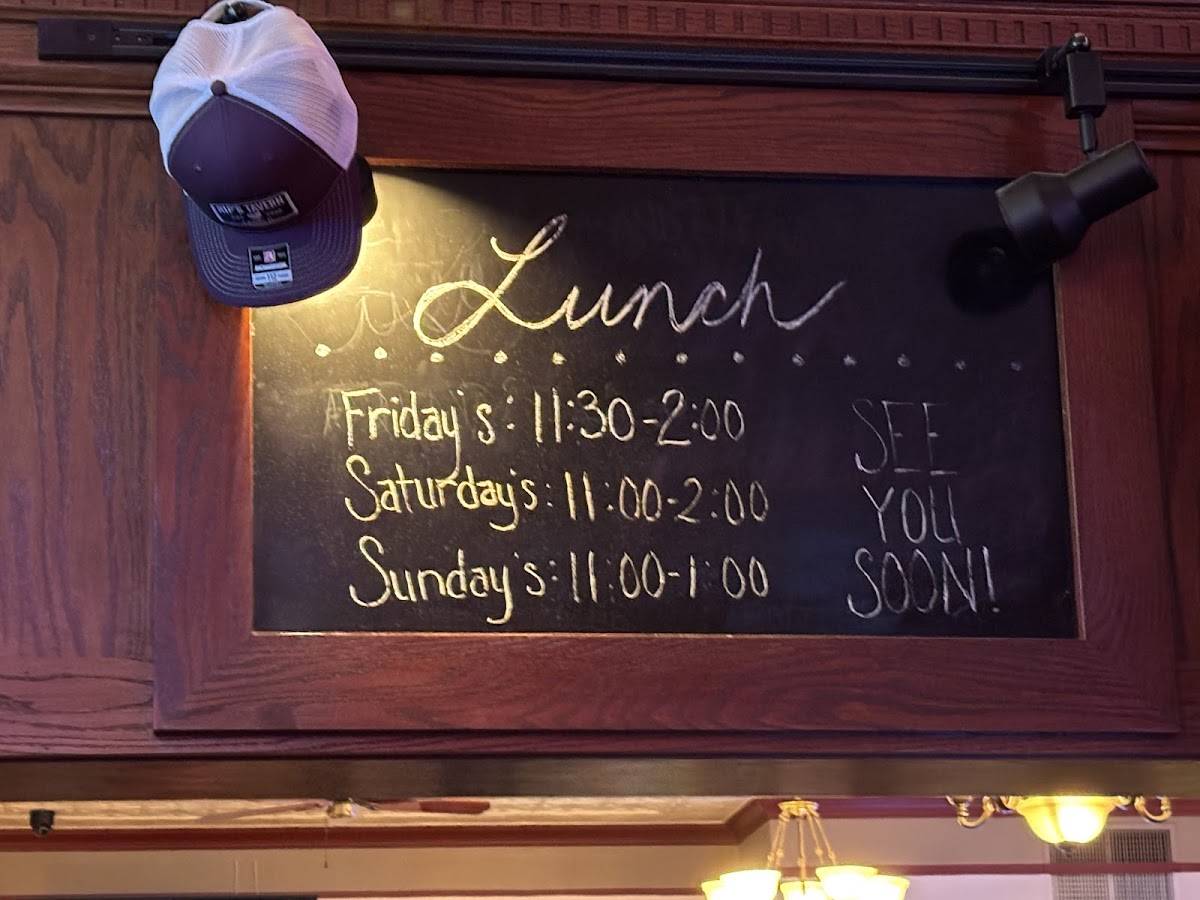 RIP'S TAVERN
Lunch
Friday's: 11:30-2:00
Saturday's: 11:00-2:00
Sunday's: 11:00-1:00
SEE
YOU
SOON!